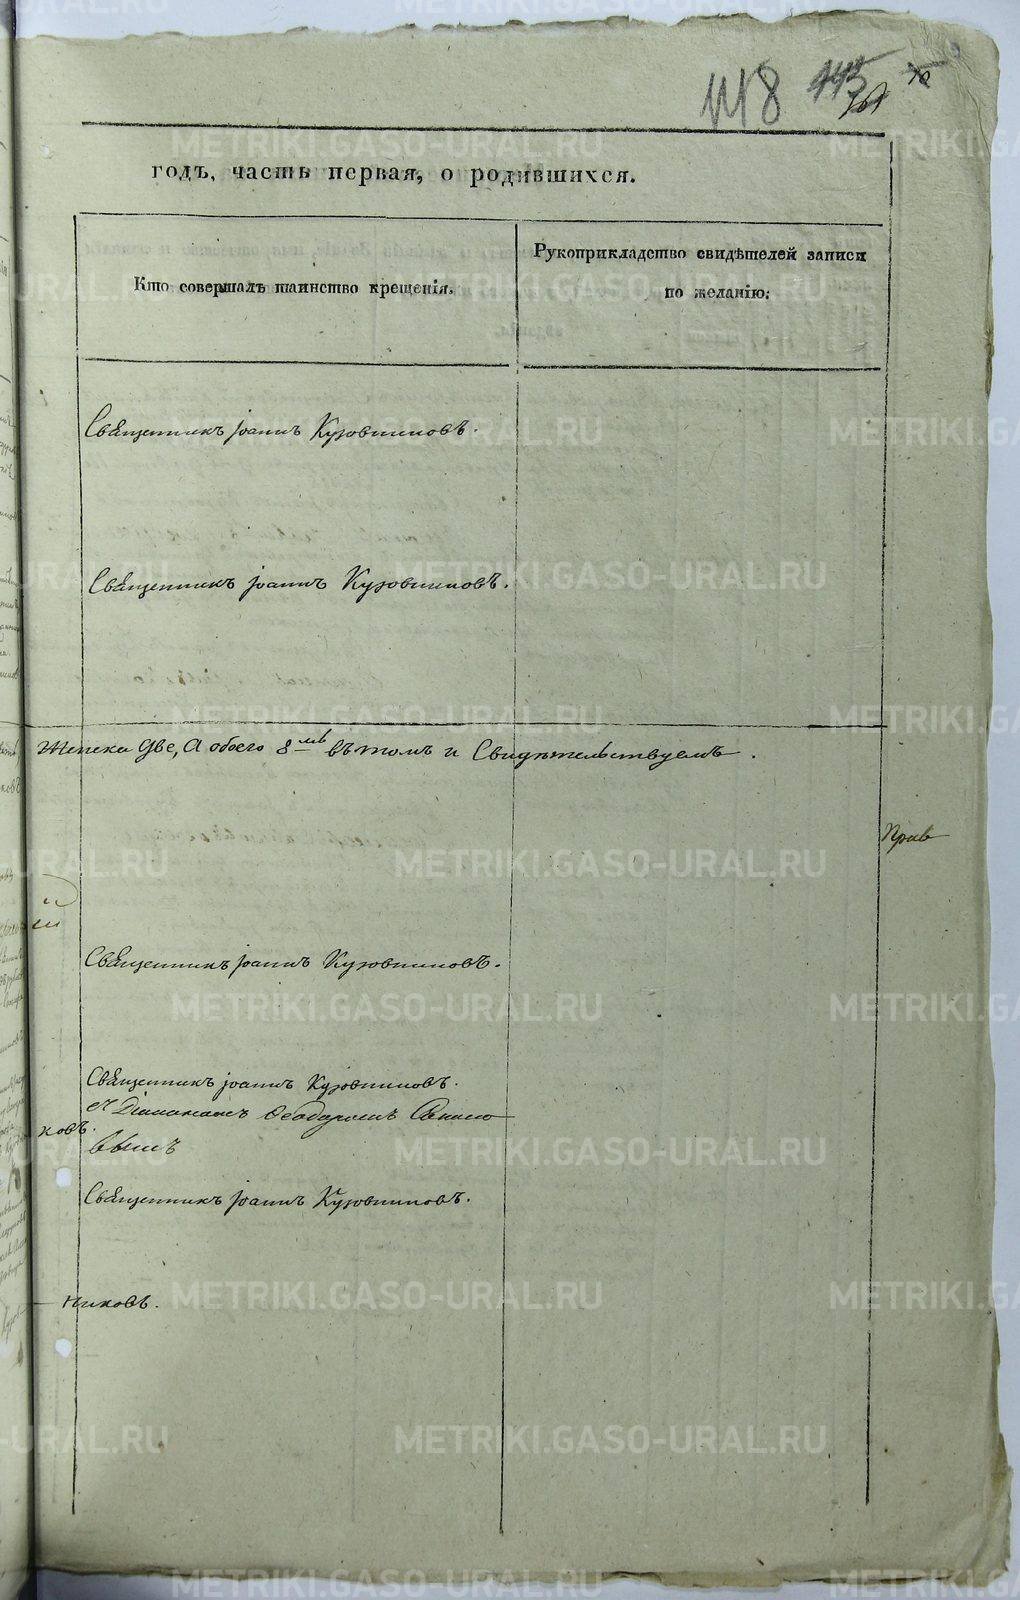 118 115
годъ, часть первая, о родившихся.
Кто совершалъ таинство крещенія.
Рукоприкладство свидѣтелей записи
по желанію.
Священникъ Іоаннъ Кузовниковъ.
Священникъ Іоаннъ Кузовниковъ.
Женска две, А обоего 8 въ томъ и Свидѣтельствуемъ.
Прав
Священникъ Іоаннъ Кузовниковъ.
Священникъ Іоаннъ Кузовниковъ.
съ Діакономъ Феодоромъ
ковъ.
вымъ
Священникъ Іоаннъ Кузовниковъ.
никовъ.
METRIKI.GASO-URAL.RU